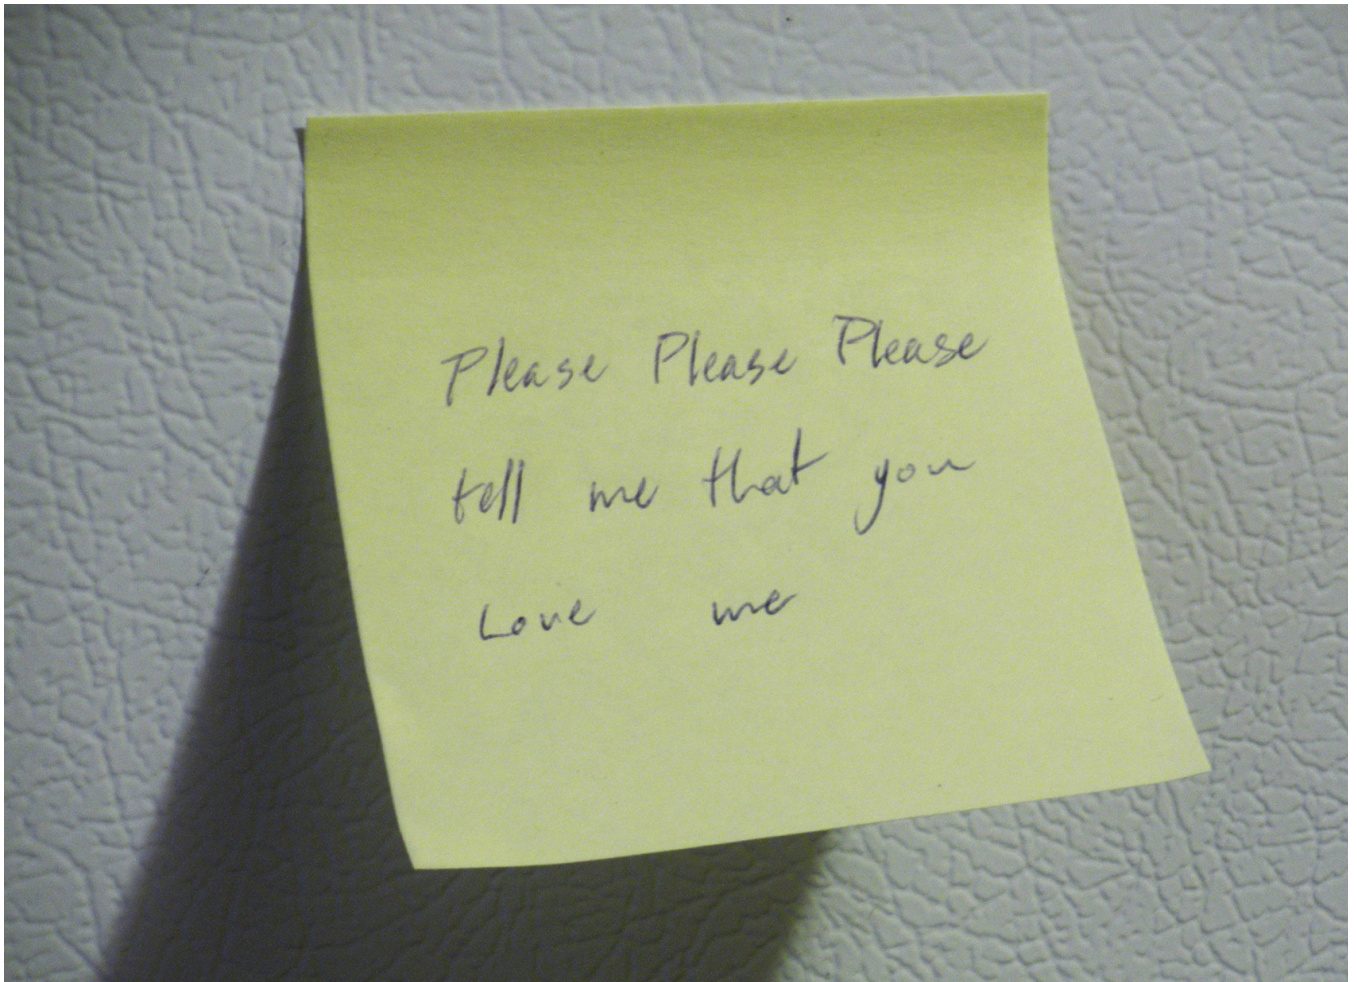 Please Please Please
tell me that you
Love me